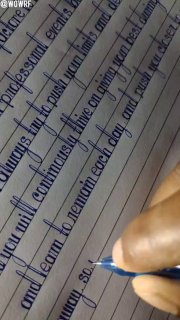 @WGWRF
picture
professional events
always try to push your limits and
you will continously thrive on giving your best owning
and learn to remain each day and push yourself
way. so